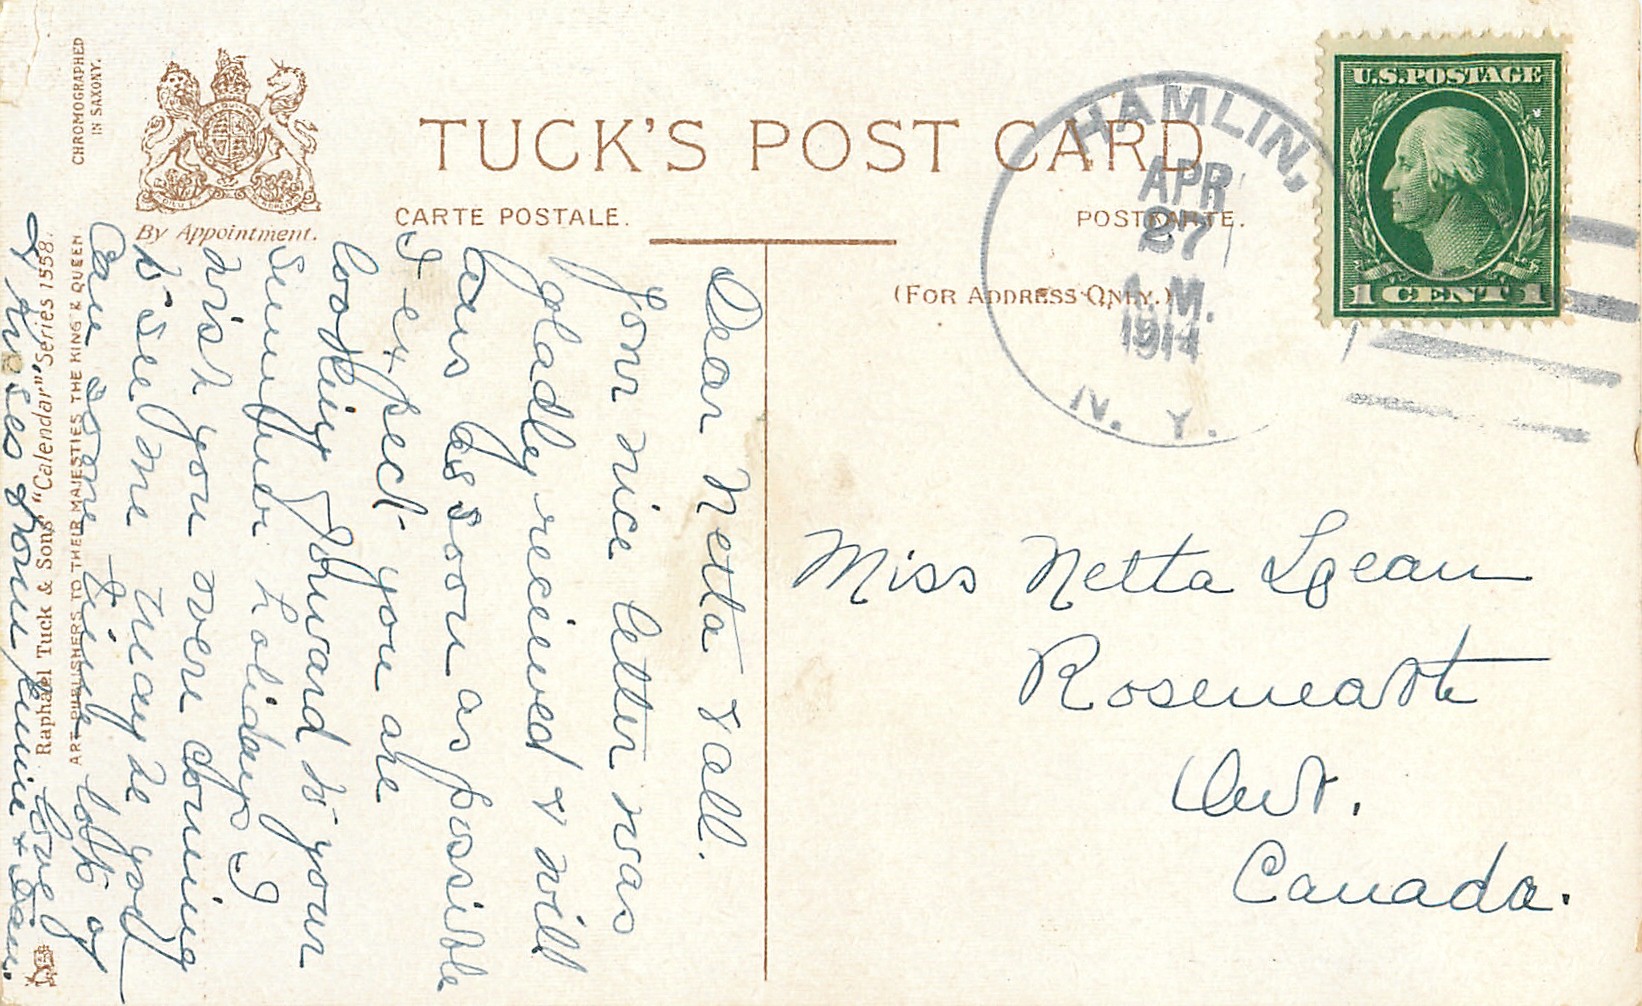 CHROMOGRAPHED
IN SAXONY.
By Appointment.
TUCK'S POST CARD
CARTE POSTALE.
POSTKARTE.
(FOR ADDRESS ONLY.)
HAMLIN,
APR
27
A.M.
1914
N. Y.
U.S. POSTAGE
1 CENT 1
Dear Netta & all.
Your nice letter was
gladly received & will
ans as soon as possible
I expect you are
looking forward to your
summer holidays I
wish you were coming
to see me may be you
can some time lots of love
& kisses from Jennie & Dan.
Raphael Tuck & Sons' "Calendar" Series 1558.
ART PUBLISHERS TO THEIR MAJESTIES THE KING & QUEEN.
Miss Netta
Roseneath
Ont.
Canada.